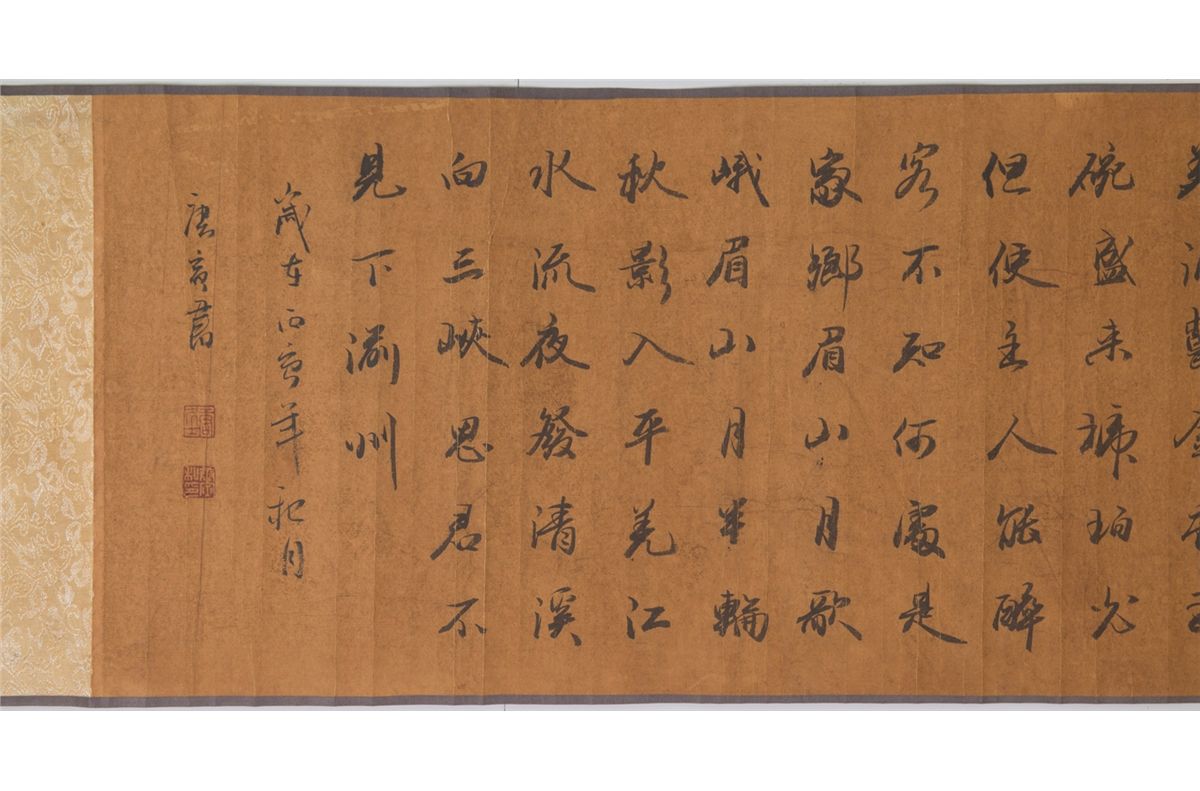 碗盛来琥珀光
但使主人能醉
客不知何處是
家鄉眉山月歌
峨眉山月半輪
秋影入平羌江
水流夜發清溪
向三峽思君不
見下渝州
歲在丙寅年秋月
唐寅書